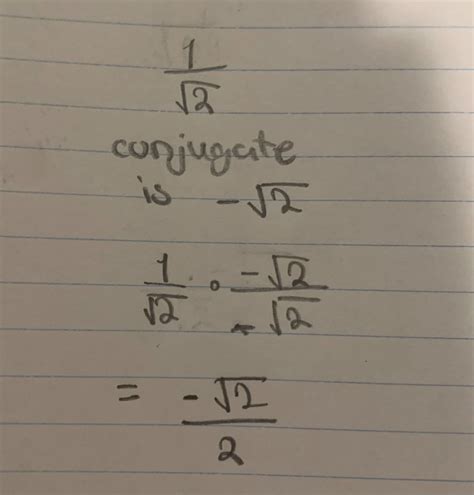 1/√2
conjugate
is -√2
1/√2 · -√2/-√2
= -√2/2